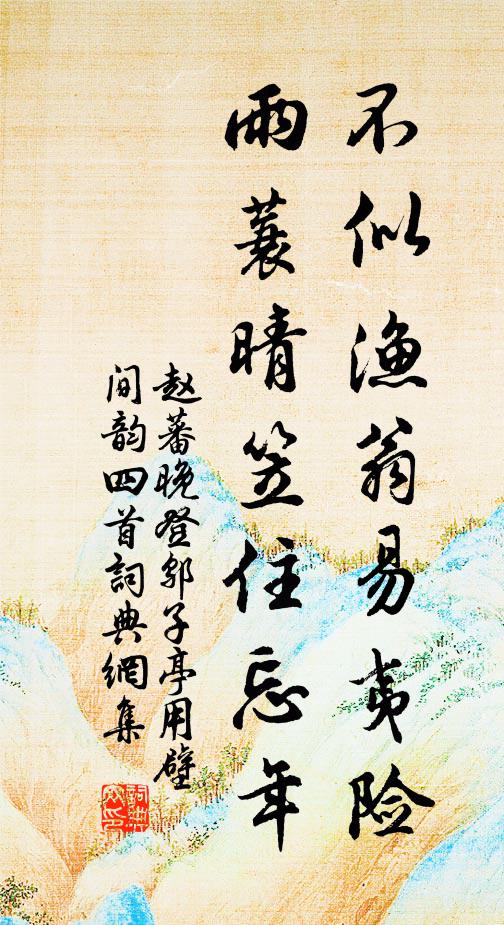 不似渔翁易夷险
雨蓑晴笠住忘年
赵蕃晚登邬子亭用壁
间韵四首词典網集